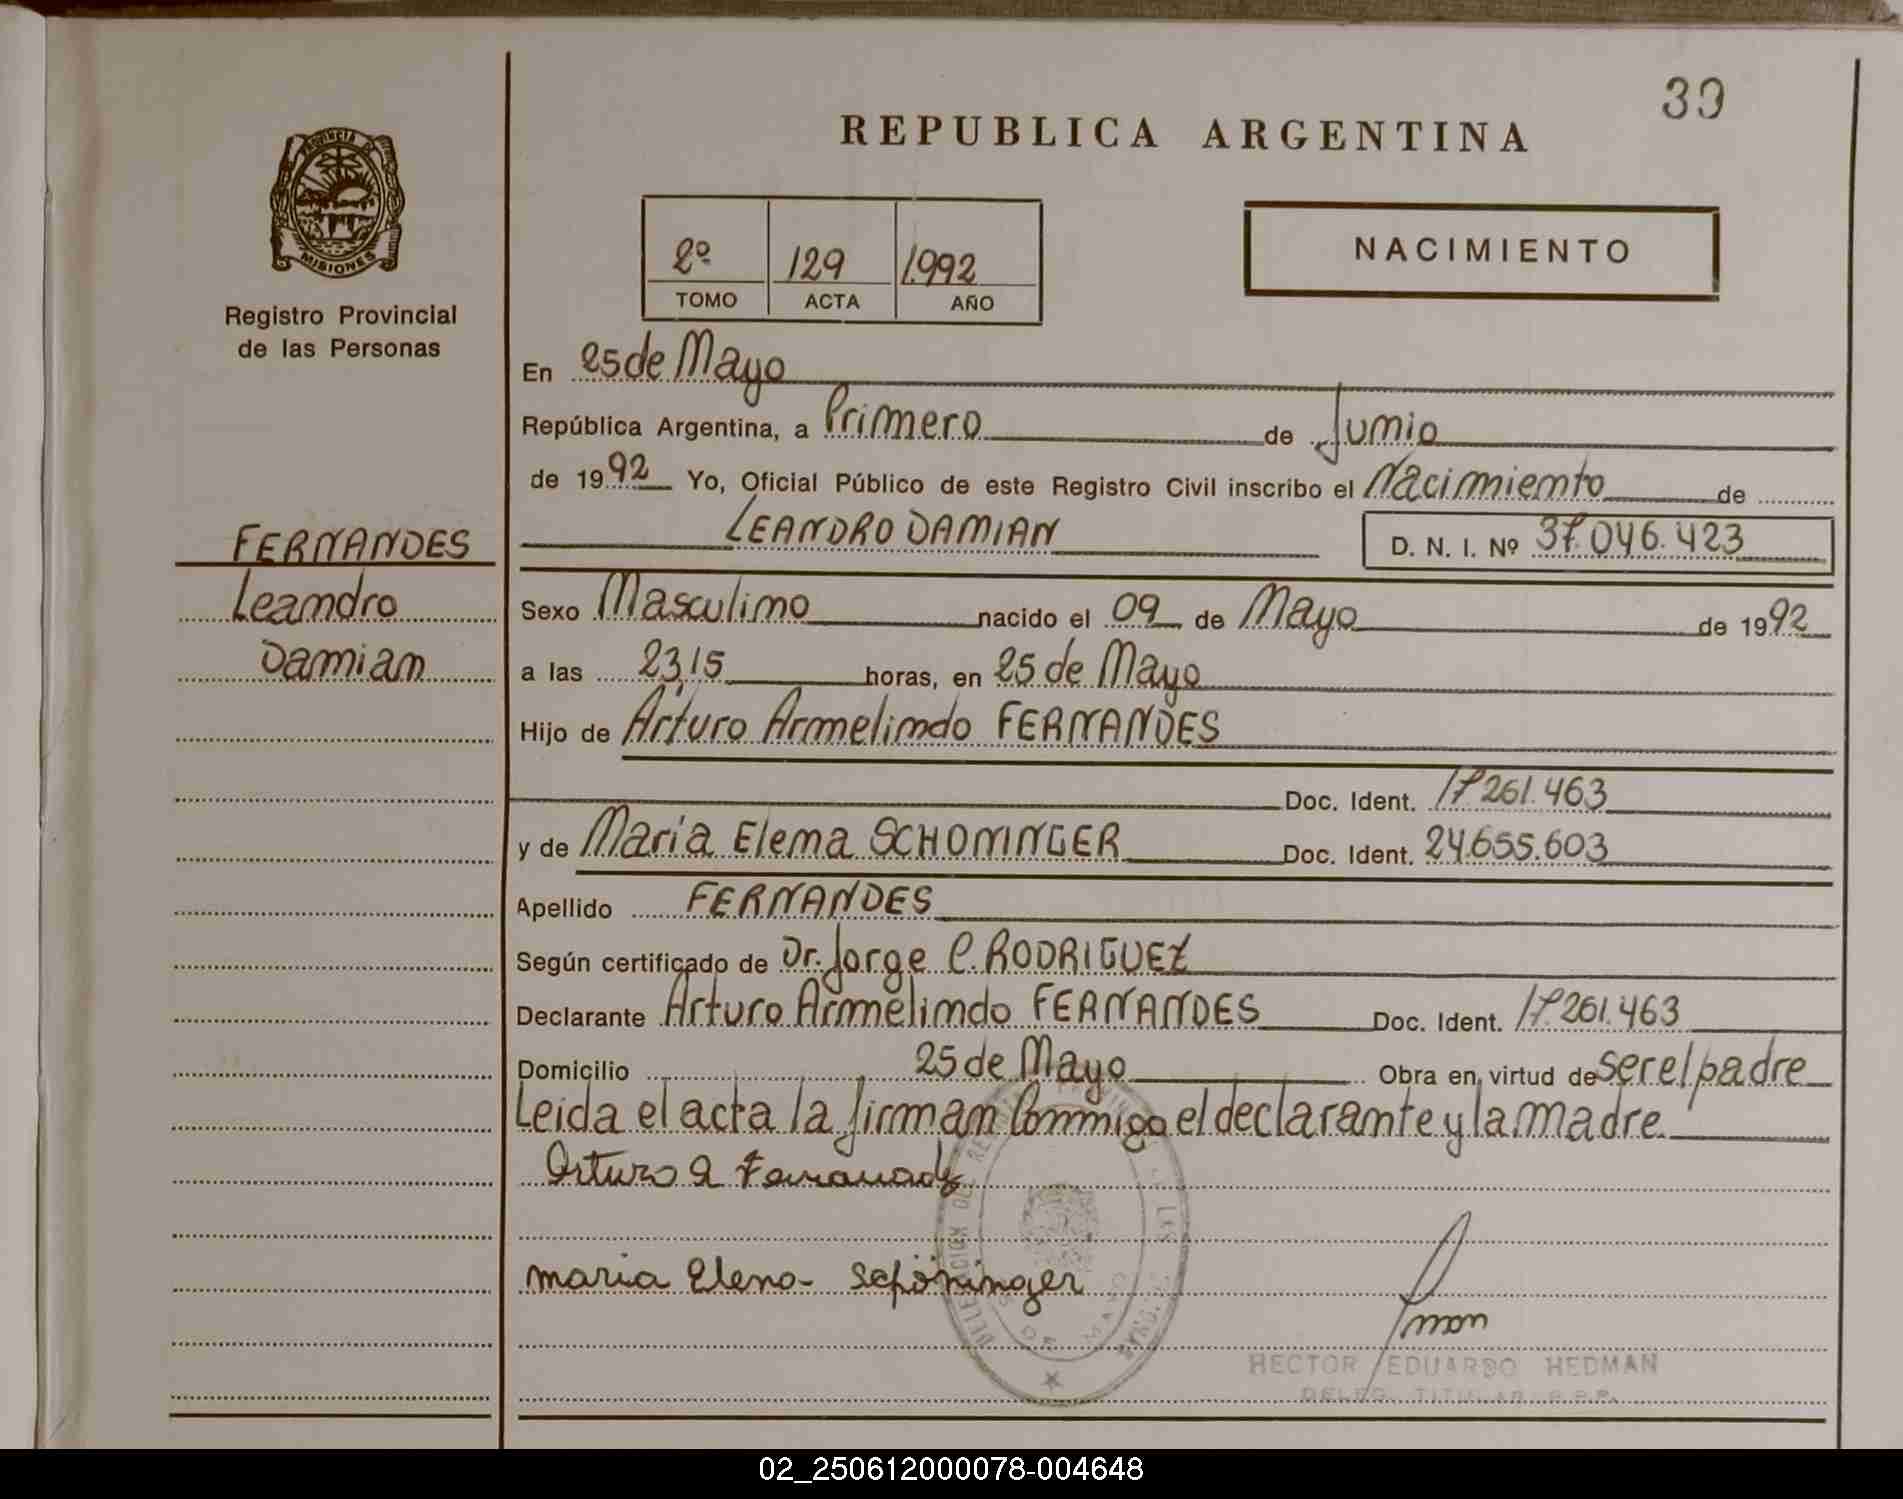 39
REPUBLICA ARGENTINA
PROVINCIA DE
MISIONES
Registro Provincial
de las Personas
2º 129 1.992
TOMO ACTA AÑO
NACIMIENTO
En 25 de Mayo
República Argentina, a Primero de Junio
de 1992 Yo, Oficial Público de este Registro Civil inscribo el Nacimiento de
LEANDRO DAMIAN D. N. I. Nº 37.046.423
FERNANDES
Leandro
Damian
Sexo Masculino nacido el 09 de Mayo de 1992
a las 23,15 horas, en 25 de Mayo
Hijo de Arturo Armelindo FERNANDES
Doc. Ident. 17.261.463
y de Maria Elena SCHONINGER Doc. Ident. 24.655.603
Apellido FERNANDES
Según certificado de Dr. Jorge C. RODRIGUEZ
Declarante Arturo Armelindo FERNANDES Doc. Ident. 17.261.463
Domicilio 25 de Mayo Obra en virtud de ser el padre
Leida el acta la firman Conmigo el declarante y la madre
Arturo A Fernandes
maria Elena Schöninger
HECTOR EDUARDO HEDMAN
DELEG. TITULAR R.P.P.
02_250612000078-004648